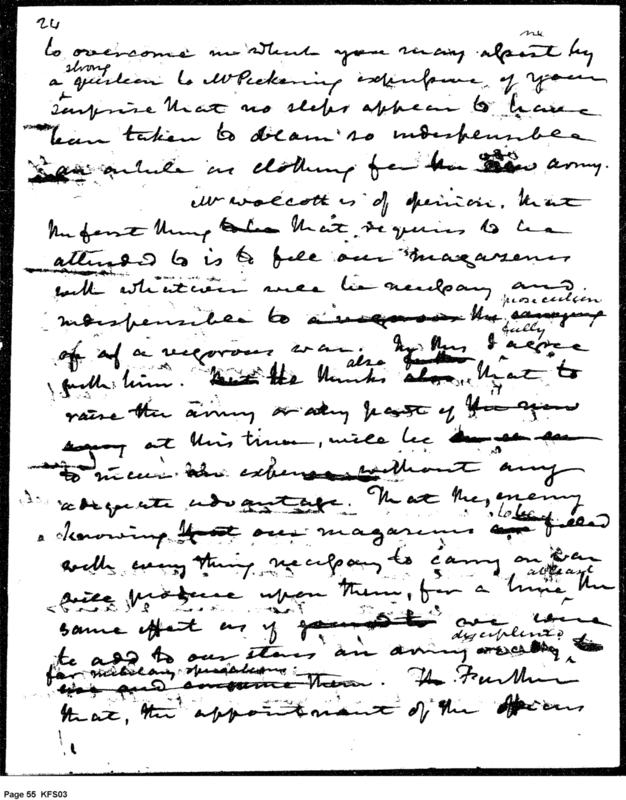 24
to overcome me which you may assist by
a strong question to Mr Pickering expressive of your
surprise that no steps appear to have
been taken to obtain so indispensible
an article as clothing for the army.
Mr Wolcott is of opinion, that
the first thing that requires to be
attended to is to fill our magazenes
with whatever will be necessary and
indispensible to the prosecution
of a vigorous war. In this I agree fully
with him. He thinks also that to
raise the army or any part of it
at this time, will be
to incur expense without any
adequate advantage. That the enemy
knowing our magazenes to be filled
with every thing necessary to carry on war
will produce upon them, for a time at least the
same effect as if we were
to add to our stores an army disciplined
for military operations. Further
that, the appointment of the officers
Page 55 KFS03